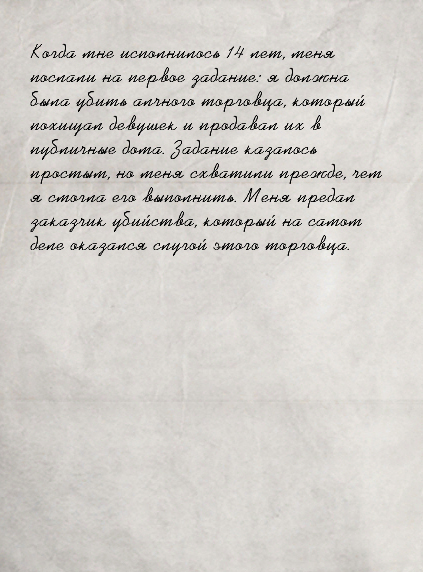 Когда мне исполнилось 14 лет, меня
послали на первое задание: я должна
была убить алчного торговца, который
похищал девушек и продавал их в
публичные дома. Задание казалось
простым, но меня схватили прежде, чем
я смогла его выполнить. Меня предал
заказчик убийства, который на самом
деле оказался слугой этого торговца.